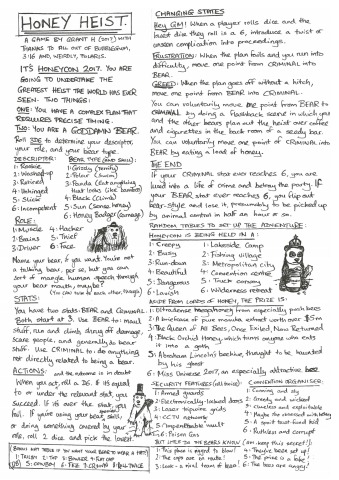 HONEY HEIST.
A GAME BY GRANT H (2017) WITH
THANKS TO ALL OUT OF BUBBLEGUM,
3:16 AND, WEIRDLY, TOLARIS.
IT'S HONEYCON 2017. YOU ARE
GOING TO UNDERTAKE THE
GREATEST HEIST THE WORLD HAS EVER
SEEN. TWO THINGS:
ONE: YOU HAVE A COMPLEX PLAN THAT
REQUIRES PRECISE TIMING.
TWO: YOU ARE A GODDAMN BEAR.
Roll 3D6 to determine your descriptor,
your role, and your bear type.
DESCRIPTOR:
1: Rookie
2: Washed-up
3: Retired
4: Unhinged
5: Slick
6: Incompetent
BEAR TYPE (AND SKILL):
1: Grizzly (Terrify)
2: Polar (Swim)
3: Panda (Eat anything
that looks like bamboo)
4: Black (Climb)
5: Sun (Sense honey)
6: Honey Badger (Carnage)
ROLE:
1: Muscle
2: Brains
3: Driver
4: Hacker
5: Thief
6: Face
Name your bear, if you want. You're not
a talking bear, per se, but you can
sort of mangle human speech through
your bear mouth, maybe?
(You CAN talk to each other, though)
STATS:
You have two stats: BEAR and CRIMINAL.
Both start at 3. Use BEAR to: maul
stuff, run and climb, shrug off damage,
scare people, and generally be a bear.
Use CRIMINAL to: do anything
not directly related to being a bear.
ACTIONS: and the outcome is in doubt
When you act, roll a D6. If it's equal
to or under the relevant stat, you
succeed. If it's over the stat, you
fail. If you're using your bear skill,
or doing something covered by your
role, roll 2 dice and pick the lowest.
1: TRILBY 2: TOP 3: BOWLER 4: FLAT CAP
5: COWBOY 6: FEZ 7: CROWN 8: ROLL TWICE
CHANGING STATES
Hey GM! When a player rolls dice and the
lowest dice they roll is a 6, introduce a twist or
unseen complication into proceedings.
FRUSTRATION: When the plan fails and you run into
difficulty, move one point from CRIMINAL into
BEAR.
GREED: When the plan goes off without a hitch,
move one point from BEAR into CRIMINAL.
You can voluntarily move one point from BEAR to
CRIMINAL by doing a flashback scene in which you
and the other bears plan out the heist over coffee
and cigarettes in the back room of a seedy bar.
You can voluntarily move one point of CRIMINAL into
BEAR by eating a load of honey.
THE END
If your CRIMINAL stat ever reaches 6, you are
lured into a life of crime and betray the party. If
your BEAR stat ever reaches 6, you flip out
bear-style and lose it, presumably to be picked up
by animal control in half an hour or so.
RANDOM TABLES TO SET UP THE ADVENTURE:
HONEYCON IS BEING HELD IN A:
1: Creepy
2: Busy
3: Run-down
4: Beautiful
5: Dangerous
6: Lavish
1: Lakeside Camp
2: Fishing village
3: Metropolitan city
4: Convention center
5: Truck convoy
6: Wilderness retreat
ASIDE FROM LORDS OF HONEY, THE PRIZE IS:
1: Ultradense Manaphora from especially posh bees
3: The Queen of All Bees, Once Exiled, Now Returned
4: Black Orchid Honey, which turns anyone who eats
it into a goth
5: Abraham Lincoln's beehive, thought to be haunted
by his ghost
6: Miss Universe 2017, an especially attractive bee
SECURITY FEATURES (roll twice):
1: Armed guards
2: Electronically-locked doors
3: Laser tripwire grids
4: CCTV network
5: Impenetrable vault
6: Poison Gas
CONVENTION ORGANISER:
1: Cunning and sly
2: Greedy and wicked
3: Clueless and exploitable
5: A spoilt trust-fund kid
6: Ruthless and corrupt
1: This place is rigged to blow!
2: The cops are on route!
3: Look - a rival team of bears!
4: They've been set up!
5: The prize is a fake!
6: The bees are angry!